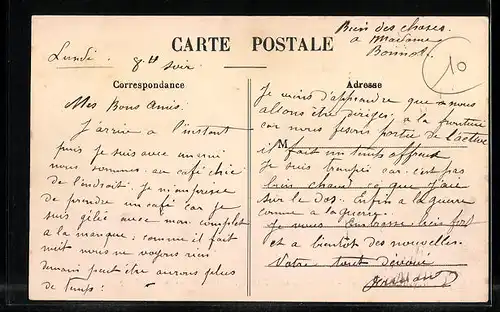 Bien des choses
a Madame
Bonnot.
Lundi.
8 H soir
CARTE POSTALE
10
Correspondance
Mes Bons Amis.
J'arrive a l'instant
puis je suis avec un ami
nous sommes au café chic
de l'endroit. Je m'empresse
de prendre un café car je
suis gêlée avec mon complet
a la manque: comme il fait
nuit nous ne voyons rien
demain peut être aurons plus
de temps:
Adresse
Je viens d'apprendre que nous
allons être dirigés a la frontière
car nous fesons partie de l'active
M
il fait un temps affreux
Je suis trempée car c'est pas
bien chaud ce que j'aie
sur le dos. Enfin a la guerre
comme a la guerre.
Je vous embrasse bien fort
et a bientot des nouvelles.
Votre tout dévoué